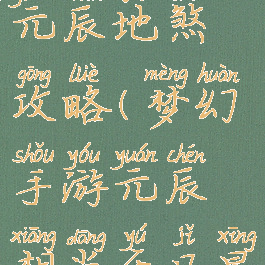 元辰地煞
gōng lüè mèng huàn
攻略(梦幻
shǒu yóu yuán chén
手游元辰
xiāng dāng yú jǐ xīng
相当于几星